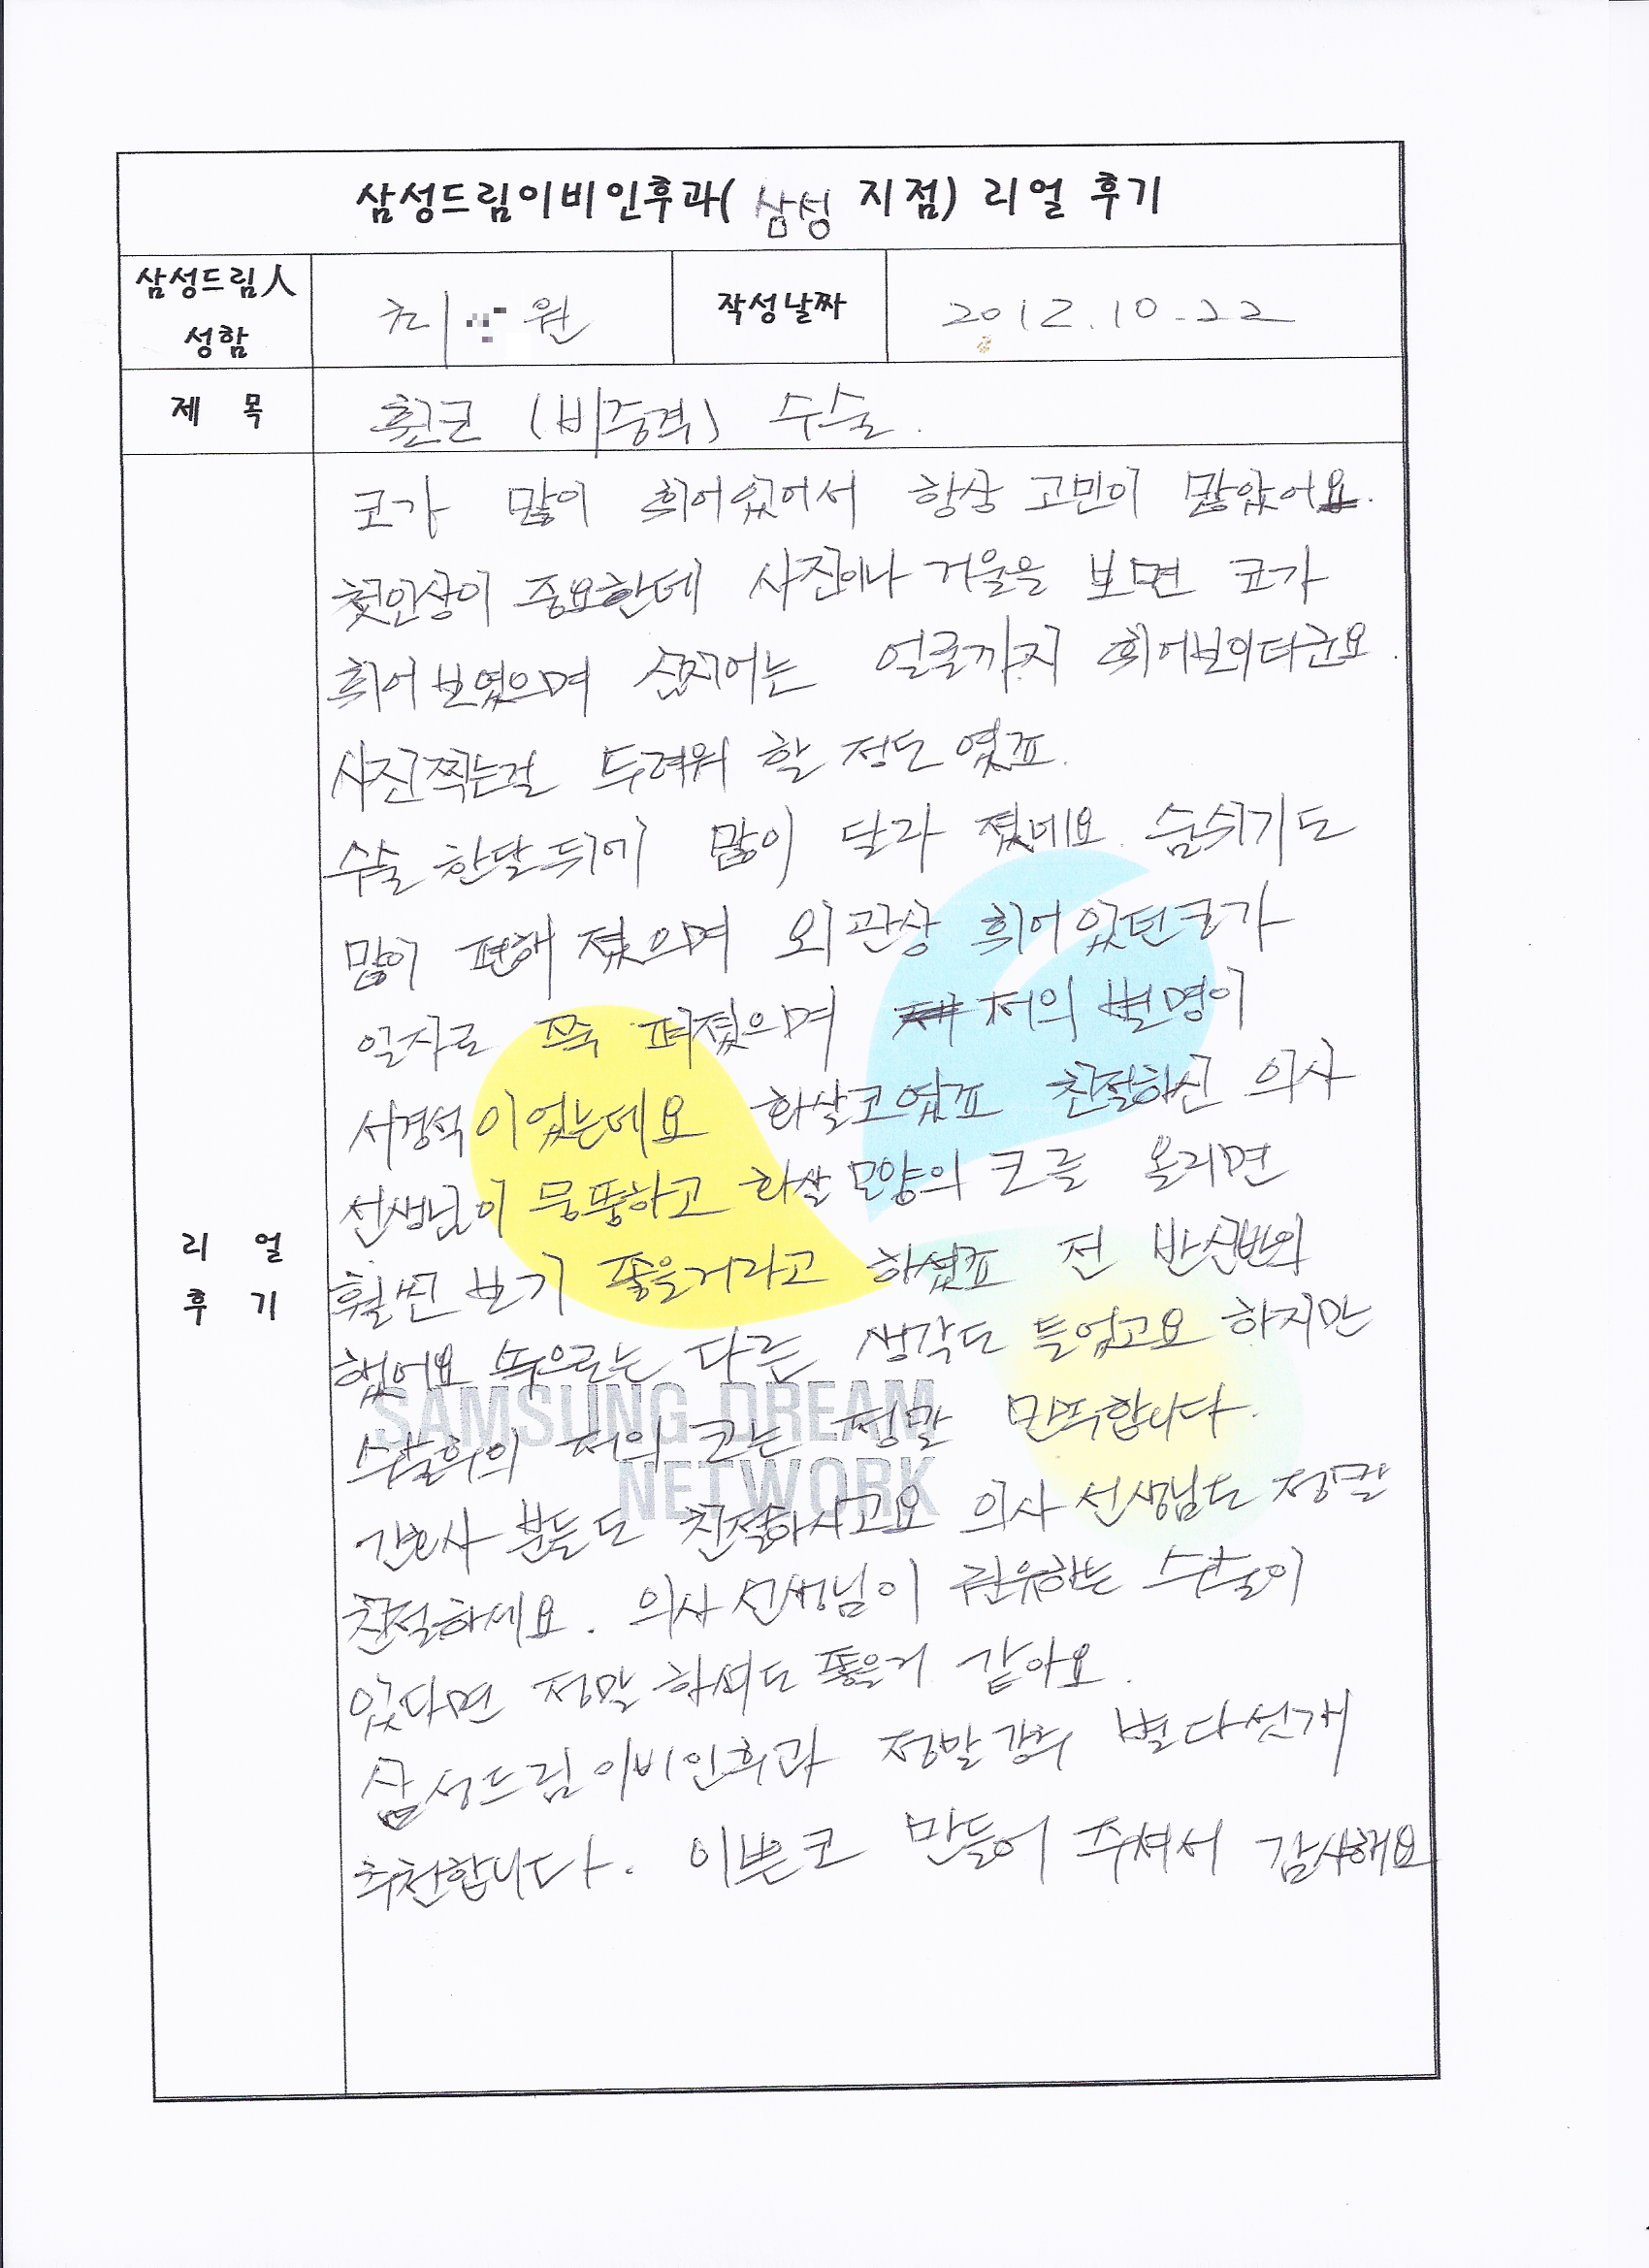 삼성드림이비인후과( 삼성 지점) 리얼 후기
삼성드림人
성함
최 원
작성날짜
2012.10.22
제 목
휜코 (비중격) 수술.
리 얼
후 기
코가 많이 휘어있어서 항상 고민이 많았어요.
첫인상이 중요한데 사진이나 거울을 보면 코가
휘어 보였으며 심지어는 얼굴까지 휘어보이더군요.
사진찍는걸 두려워 할 정도 였죠.
수술 한달뒤에 많이 달라 졌네요. 숨쉬기도
많이 편해 졌으며 외관상 휘어 있던코가
일자로 쭉 펴졌으며 저의 별명이
서경석이었는데요 화살코였죠 친절하신 의사
선생님이 뭉뚱하고 화살 모양의 코를 올리면
훨씬 보기 좋을거라고 하셨죠 전 반신반의
했어요 속으로는 다른 생각도 들었고요 하지만
수술후의 저의 코는 정말 만족합니다.
간호사 분들도 친절하시고요 의사 선생님도 정말
친절하세요. 의사 선생님이 권유하는 수술이
있다면 정말 하셔도 좋을거 같아요.
삼성드림이비인후과 정말강추 별다섯개
추천합니다. 이쁜코 만들어 주셔서 감사해요
SAMSUNG DREAM
NETWORK